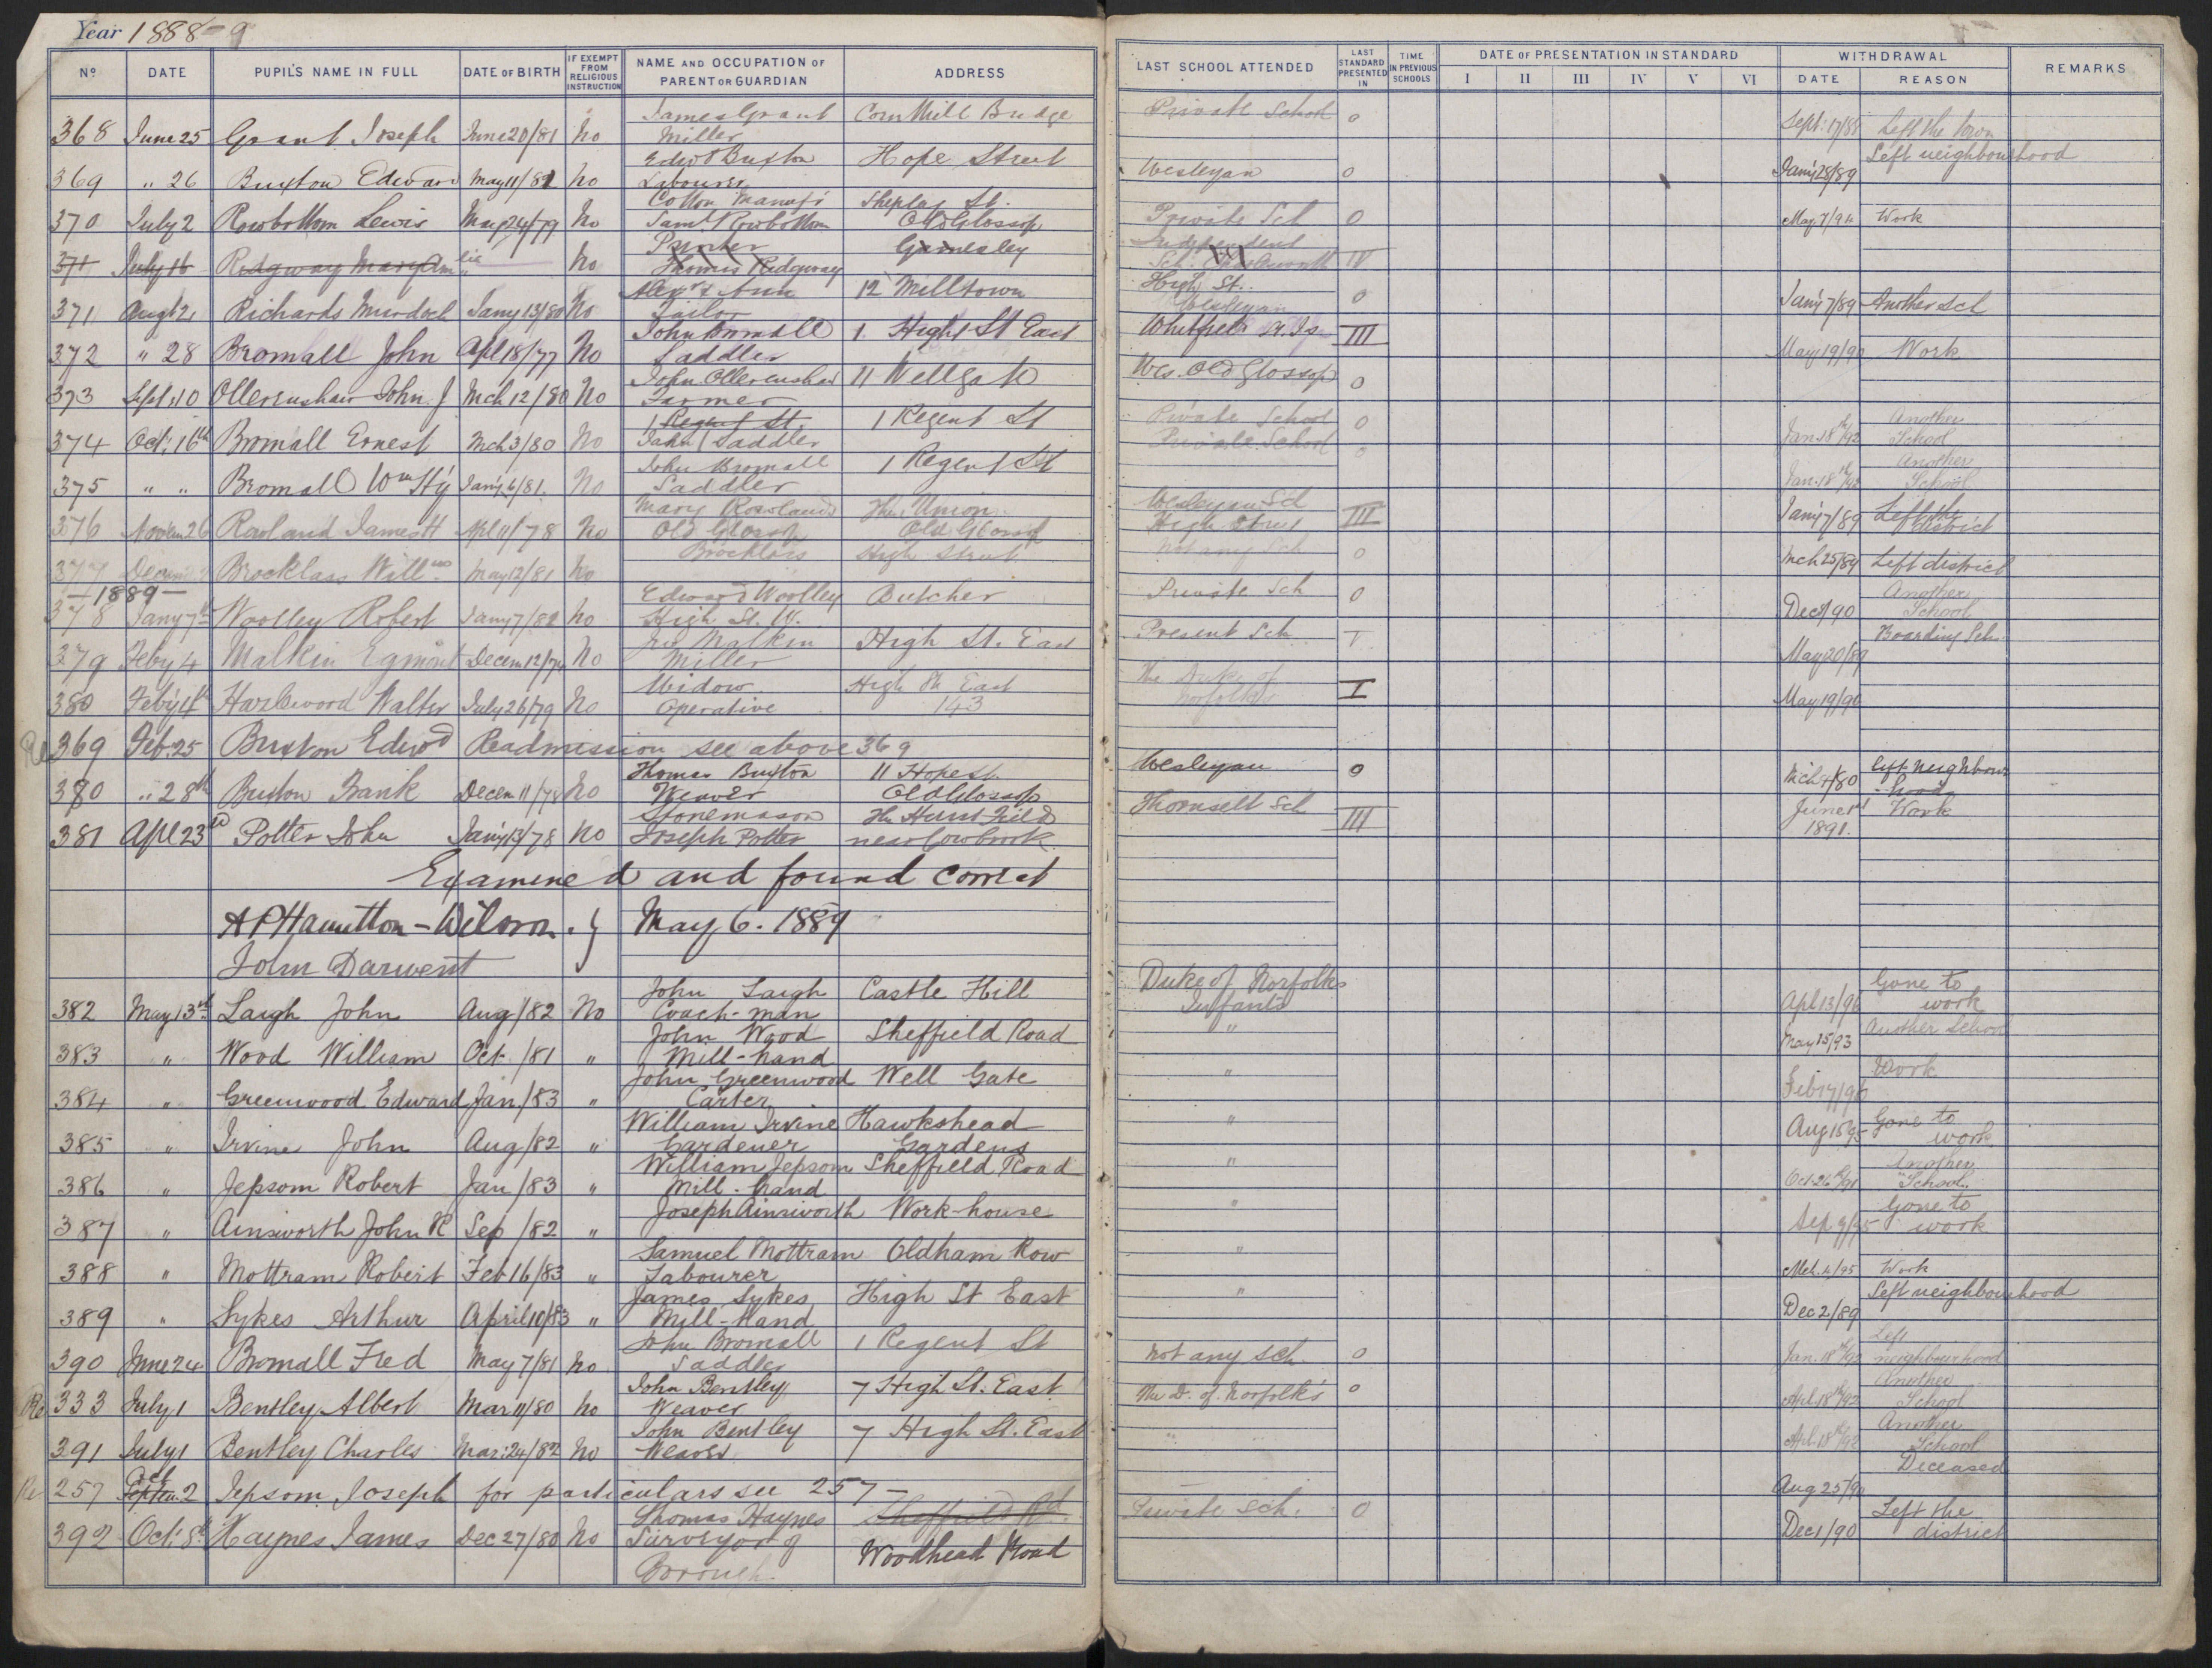 Year 1888-9
No DATE PUPIL'S NAME IN FULL DATE OF BIRTH IF EXEMPT FROM RELIGIOUS INSTRUCTION NAME AND OCCUPATION OF PARENT OR GUARDIAN ADDRESS LAST SCHOOL ATTENDED LAST STANDARD PRESENTED IN TIME IN PREVIOUS SCHOOLS DATE OF PRESENTATION IN STANDARD I II III IV V VI WITHDRAWAL DATE REASON REMARKS
James Grant Corn Mill Bridge Private School 0
368 June 25 Grant Joseph June 20/81 No Miller Sept. 17/88 Left the town
Edwd Buxton Hope Street Left neighbourhood
369 " 26 Buxton Edward May 11/81 No Labourer Wesleyan 0 Jany 28/89
Cotton Manufr Shepley St.
370 July 2 Rowbottom Lewis May 24/79 No Saml Rowbottom Old Glossop Private Sch 0 May 7/94 Work
Printer Gamesley Independent
371 July 16 Ridgway Mary Ann No Thomas Ridgway Sch. Charlesworth IV
Alexr & Ann 12 Milltown High St.
371 Aug 21 Richards Murdoch Jany 13/80 No Tailor Wesleyan 0 Jany 7/89 Another Sch
John Bromall 1. High St East Whitfield III
372 " 28 Bromall John Apl 18/77 No Saddler May 19/90 Work
John Ollerenshaw 11 Wellgate Wes. Old Glossop 0
373 Sept. 10 Ollerenshaw John J Mch 12/80 No Farmer
1 Regent St. 1 Regent St Private School 0 Another
374 Oct. 16th Bromall Ernest Mch 3/80 No John Saddler Jan. 18th/92 School
John Bromall 1 Regent St Private School 0 Another
375 " " Bromall Wm Hy Jany 6/81. No Saddler Jan. 18th/92 School
Mary Rowland The Union Wesleyan Sch
376 Novem 26 Rowland James H Apl 11/78 No Old Glossop Old Glossop High Street III Jany 7/89 Left the district
Brocklass High Street Not any Sch 0
377 Decem Brocklass Willm May 12/81 No Mch 25/89 Left district
- 1889 -
Edward Woolley Butcher Private Sch 0 Another
378 Jany 7th Woolley Robert Jany 7/82 No High St. W. Dec 1/90 School
Jno Malkin High St. East Present Sch V Boarding Sch.
379 Feby 4 Malkin Egmont Decem 12/74 No Miller May 20/89
Widow High St East The Duke of
380 Feby 4th Harlewood Walter July 26/79 No Operative 143 Norfolk's I May 19/90
Re 369 Feb. 25 Buxton Edwd Readmission see above 369
Thomas Buxton 11 Hope St. Wesleyan 0 left neighbour
380 " 28th Buxton Frank Decem 11/78 No Weaver Old Glossop Mch 4/80 hood
Stonemason The Hurst Field Thornsett Sch June 1st Work
381 Apl 23rd Potter John Jany 13/78 No Joseph Potter near Cowbrook III 1891.
Examined and found correct
A P Hamilton-Wilson. } May 6. 1889
John Darwent
John Laigh Castle Hill Duke of Norfolks Gone to
382 May 13th Laigh John Aug/82 No Coach-man Infants Apl 13/96 work
John Wood Sheffield Road " Another School
383 " Wood William Oct. /81 " Mill-hand May 15/93
John Greenwood Well Gate " Work
384 " Greenwood Edward Jan/83 " Carter Feb 17/96
William Irvine Hawkshead " Gone to
385 " Irvine John Aug/82 " Gardener Gardens Aug 15/95 work
William Jepsom Sheffield Road " Another
386 " Jepsom Robert Jan/83 " Mill-hand Oct. 26th/91 School.
Joseph Ainsworth Work-house " Gone to
387 " Ainsworth John R Sep /82 " Sep 9/95 work
Samuel Mottram Oldham Row "
388 " Mottram Robert Feb 16/83 " Labourer Mch. 4/95 Work
James Sykes High St East " Left neighbourhood
389 " Sykes Arthur April 10/83 " Mill-Hand Dec 2/89
John Bromall 1 Regent St Left
390 June 24 Bromall Fred May 7/81 No Saddler Not any Sch. 0 Jan. 18th/92 neighbourhood
John Bentley 7 High St. East The D. of Norfolk's 0 Another
Re 333 July 1 Bentley Albert Mar 11/80 No Weaver Apl. 18th/92 School
John Bentley 7 High St. East " Another
391 July 1 Bentley Charles Mar: 24/82 No Weaver Apl. 18th/92 School
Oct Deceased
Re 257 Septem. 2 Jepsom Joseph for particulars see 257 - Aug 25/90
Thomas Haynes Sheffield Rd. Private Sch. 0 Left the
392 Oct. 8th Haynes James Dec 27/80 No Surveyor of Woodhead Road Dec 1/90 district
Borough.